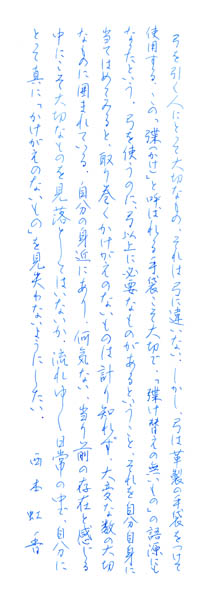 弓を引く人にとって大切なもの、それは弓に違いない。しかし、弓は革製の手袋をつけて
使用する。この「弽(かけ)」と呼ばれる手袋こそ大切で、「弽け替えの無いもの」の語源にも
なったという。弓を使うのに、弓以上に必要なものがあるということ、それを自分自身に
当てはめてみると、取り巻くかけがえのないものは計り知れず、大変な数の大切
なものに囲まれている。自分の身近にあり、何気ない、当り前の存在と感じる
中にこそ大切なものを見落としてはいないか。流れゆく日常の中で、自分に
とって真に「かけがえのないもの」を見失わないようにしたい。
西本虹香